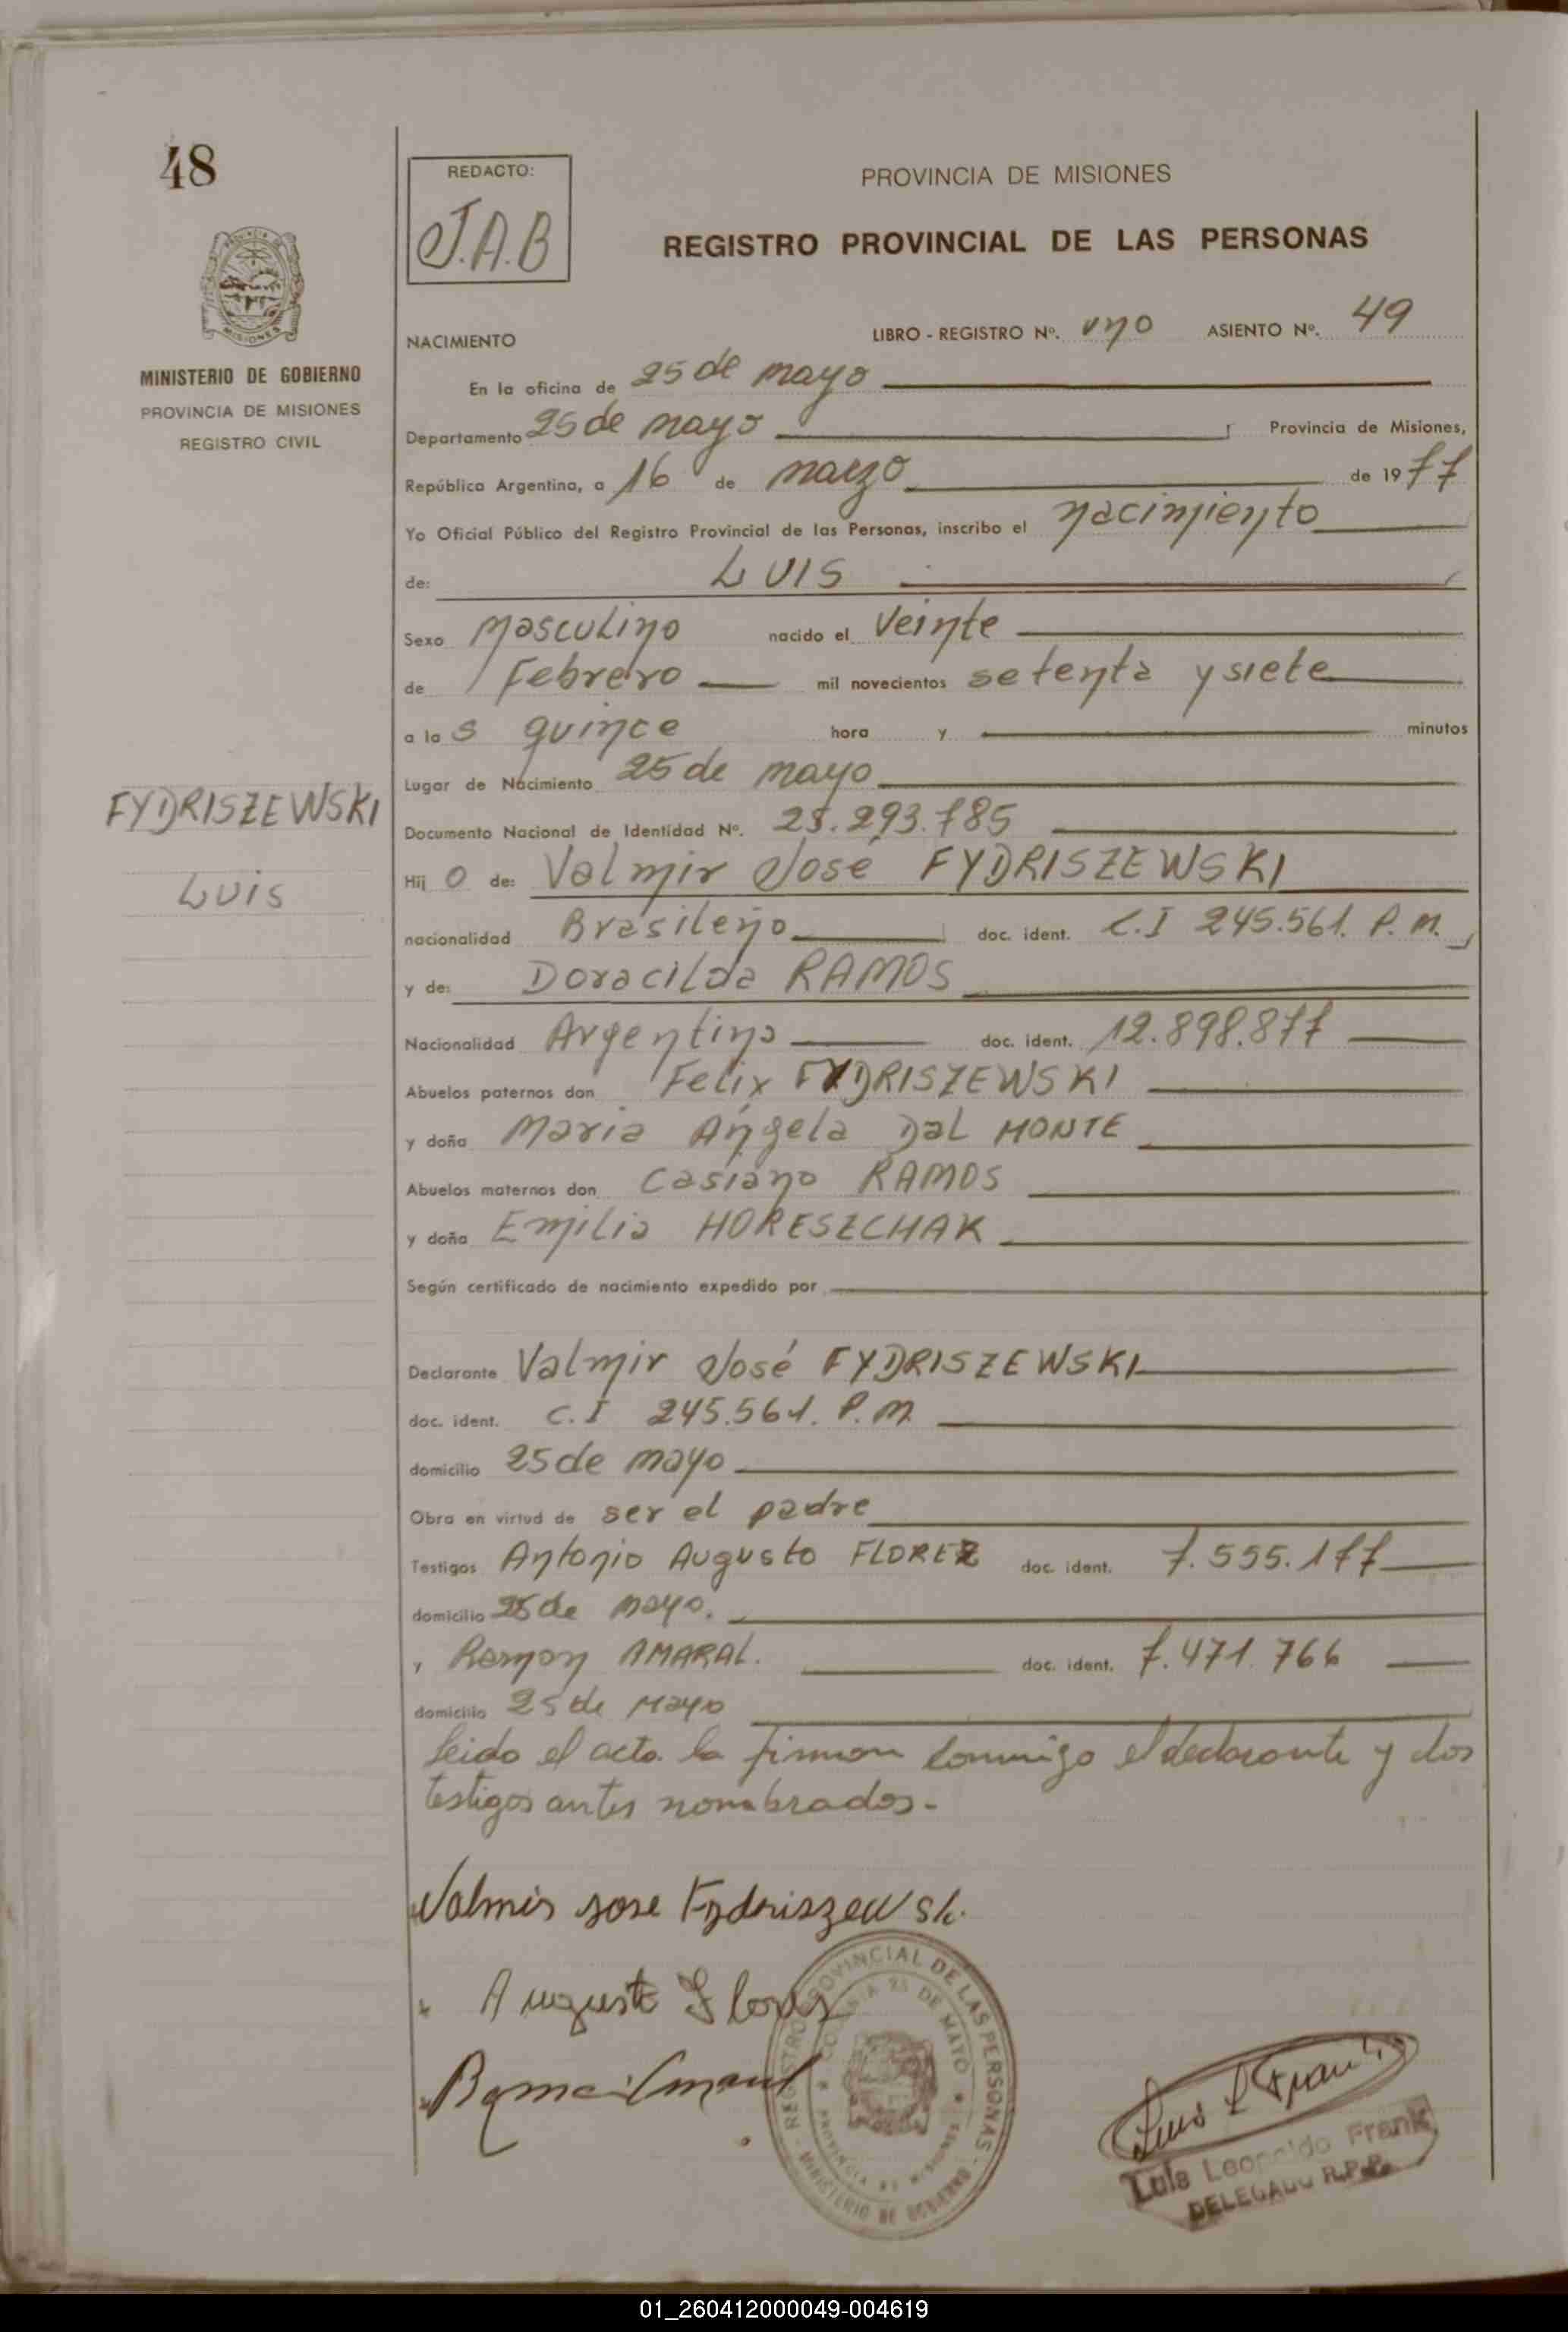 48
MINISTERIO DE GOBIERNO
PROVINCIA DE MISIONES
REGISTRO CIVIL
FYDRISZEWSKI
Luis
REDACTO:
J.A.B
PROVINCIA DE MISIONES
REGISTRO PROVINCIAL DE LAS PERSONAS
NACIMIENTO LIBRO - REGISTRO Nº. uno ASIENTO Nº. 49
En la oficina de 25 de mayo
Departamento 25 de mayo Provincia de Misiones,
República Argentina, a 16 de marzo de 1977
Yo Oficial Público del Registro Provincial de las Personas, inscribo el nacimiento
de: LUIS
Sexo masculino nacido el veinte
de Febrero mil novecientos setenta y siete
a las quince hora y minutos
Lugar de Nacimiento 25 de mayo
Documento Nacional de Identidad Nº. 25.293.785
Hijo de: Valmir José FYDRISZEWSKI
nacionalidad Brasileño doc. ident. C.I 245.561. P.M.
y de: Doracilda RAMOS
Nacionalidad Argentina doc. ident. 12.898.877
Abuelos paternos don Felix FYDRISZEWSKI
y doña Maria Angela Dal MONTE
Abuelos maternos don Casiano RAMOS
y doña Emilia HORESZCHAK
Según certificado de nacimiento expedido por
Declarante Valmir José FYDRISZEWSKI
doc. ident. C.I 245.561. P.M
domicilio 25 de mayo
Obra en virtud de ser el padre
Testigos Antonio Augusto FLOREZ doc. ident. 7.555.177
domicilio 25 de mayo.
y Ramon AMARAL. doc. ident. 7.471.766
domicilio 25 de Mayo
Leido el acta la firman conmigo el declarante y dos
testigos antes nombrados.-
Valmir Jose Fydriszewski
Augusto Florez
REGISTRO PROVINCIAL DE LAS PERSONAS - MINISTERIO DE GOBIERNO
COLONIA 25 DE MAYO
PROVINCIA DE MISIONES
Luis L Frank
Luis Leopoldo Frank
DELEGADO R.P.P.
01_260412000049-004619